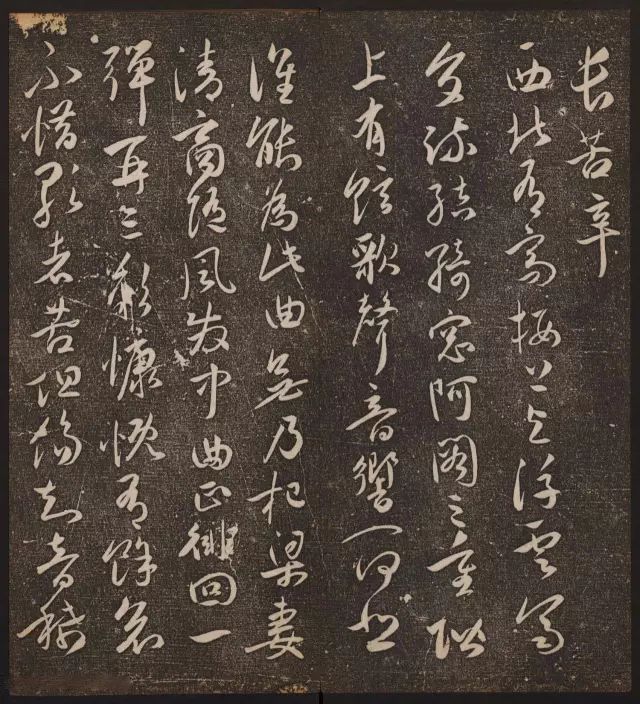 長苦辛
西北有高樓上与浮雲齊
交疏結綺窓阿閣三重階
上有絃歌聲音響一何悲
誰能為此曲無乃杞梁妻
清商隨風發中曲正徘回一
彈再三歎慷慨有餘哀
不惜歌者苦但傷知音稀